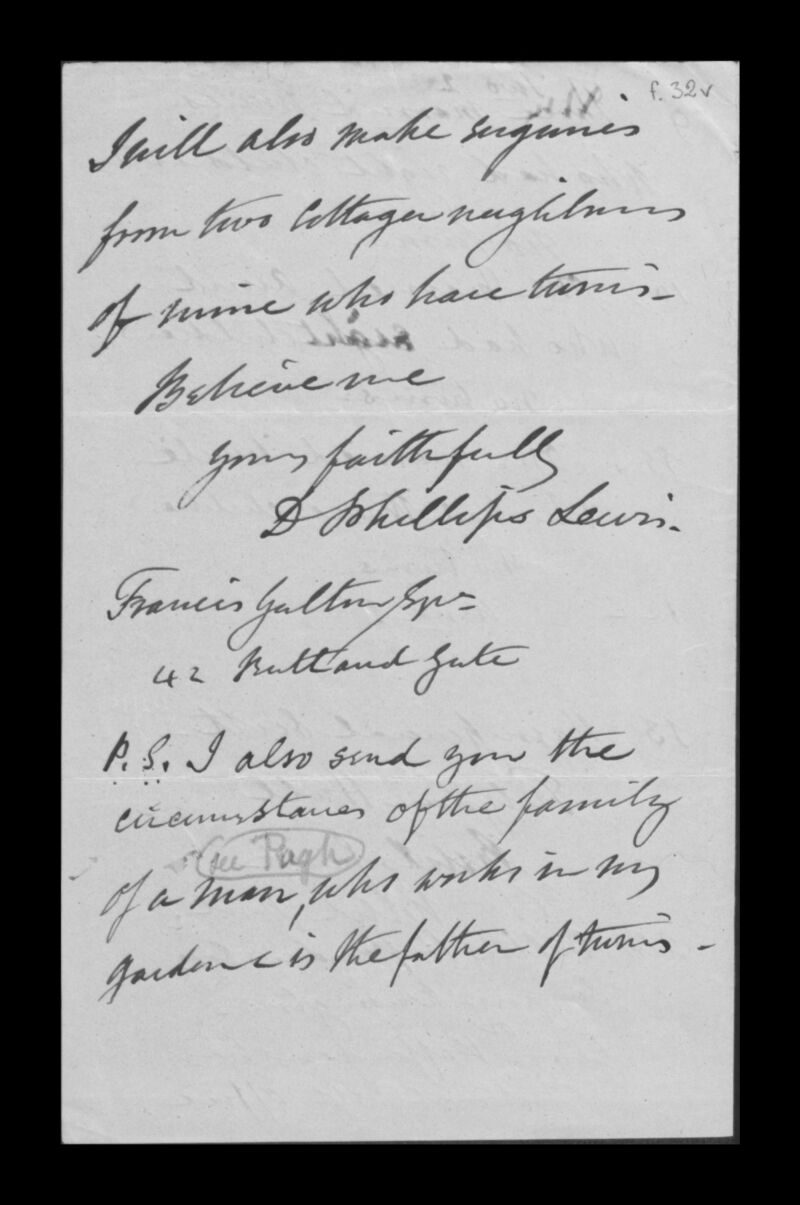 f. 32v
I will also make enquiries
from two Cottager neighbours
of mine who have twins -
Believe me
yours faithfully
D Phillips Lewis.
Francis Galton Esqr
42 Rutland Gate
P.S. I also send you the
circumstances of the family
(see Pugh)
of a man, who works in my
garden & is the father of twins -